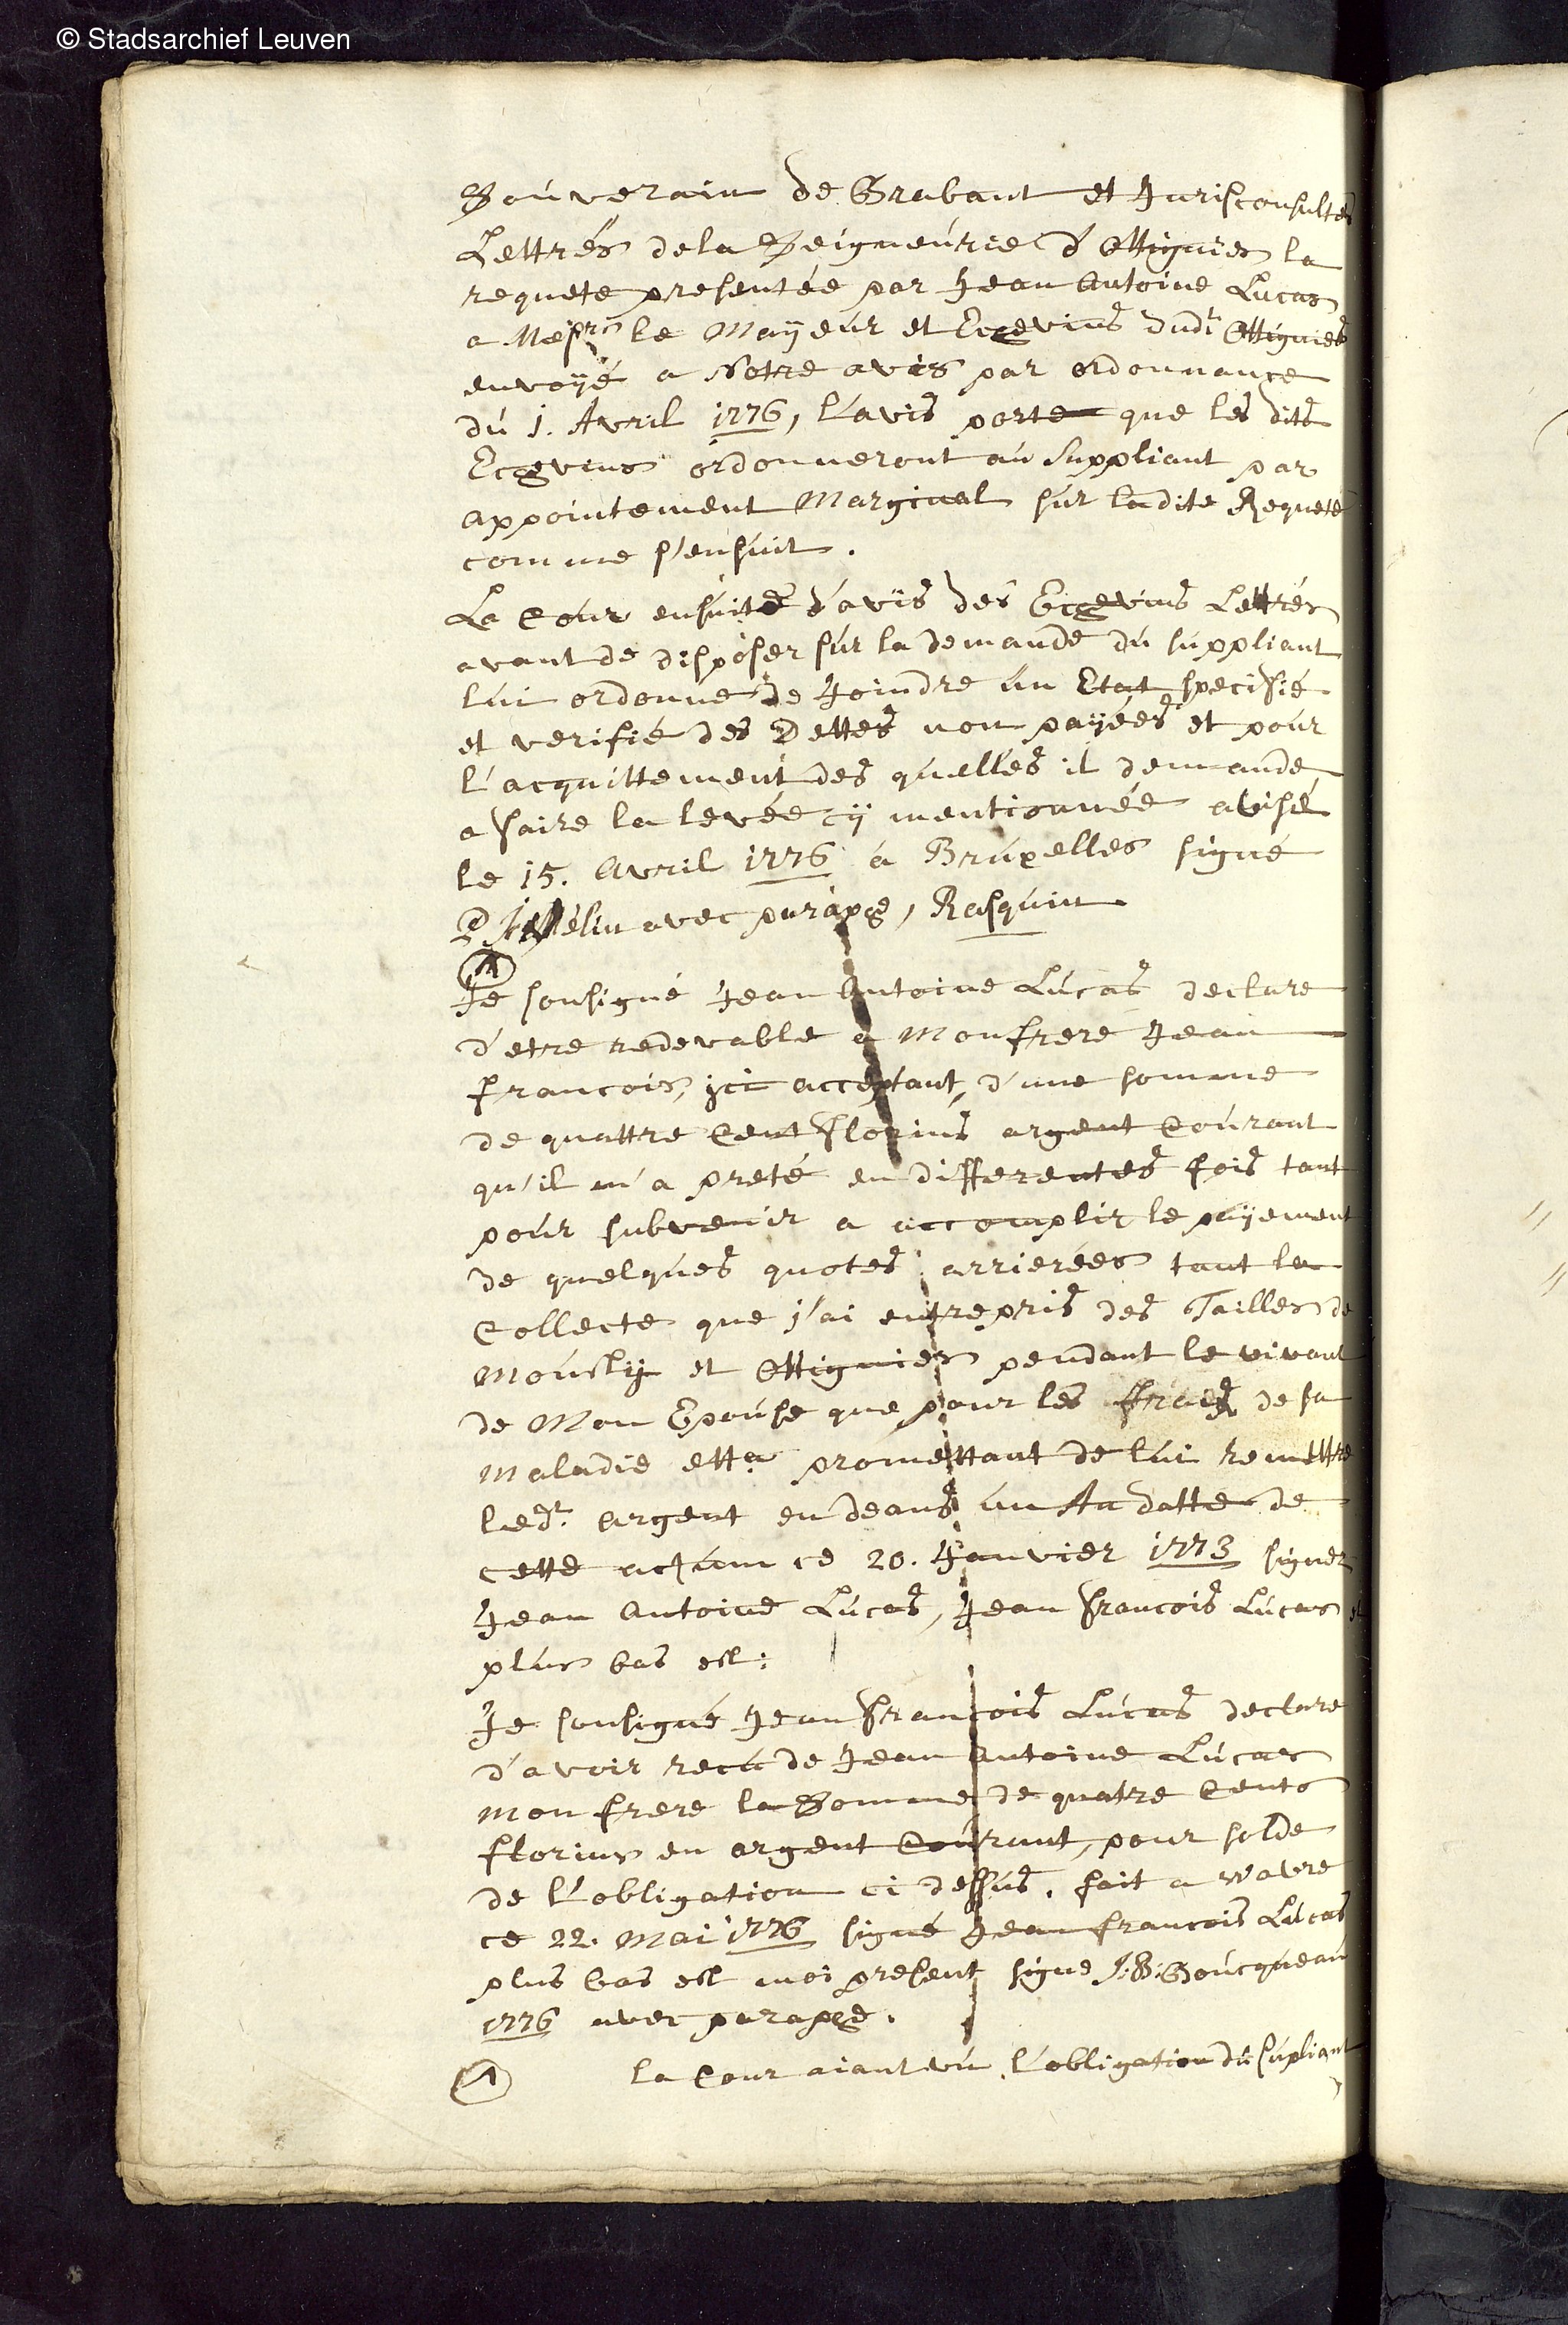 © Stadsarchief Leuven
Souverain de Brabant et Jurisconsultes
Lettrés dela Seigneurie d'Ottignies la
requete presentée par Jean Antoine Lucas
a Messrs le Maÿeur et Ecgevins dudt Ottignies
envoÿé a Notre avis par ordonnance
du 1. Avril 1776, l'avis porte que les dits
Ecgevins ordonneront au suppliant par
appointement Marginal sur ladite Requete
comme s'ensuit.
La Cour ensuite d'avis des Ecgevins Lettrés
avant de disposer sur la demande du suppliant
lui ordonne de Joindre un Etat specifié
et verifié des Dettes non paÿées et pour
l'acquittement des quelles il demande
a faire la levée cÿ mentionnée avisé
le 15. Avril 1776 a Bruxelles signé
avec parape, Rasquin
Je sousigné Jean Antoine Lucas declare
d'etre redevable a Mon frere Jean
francois, ici acceptant, d'une somme
de quattre Cent florins argent Courant
qu'il m'a preté en differentes fois tant
pour subvenir a accomplir le paÿement
de quelques quotes arrierées tant la
Collecte que j'ai entrepris des Tailles de
Moustÿ et Ottignies pendant le vivant
de Mon Epouse que pour les frais de sa
maladie etta promettant de lui remettre
ledt. argent en deans un An datte de
cette actum ce 20. Janvier 1773 signez
Jean Antoine Lucas, Jean francois Lucas et
plus bas est:
Je sousigné Jean francois Lucas declare
d'avoir recu de Jean Antoine Lucas
mon frere la Somme de quatre Cents
florins en argent Courant, pour solde
de l'obligation ci dessus. fait a Wavre
ce 22. Mai 1776 signé Jean francois Lucas
plus bas est moi present signe J:B: Boucqueau
1776 avec parape.
la Cour aiant vu l'obligation du supliant